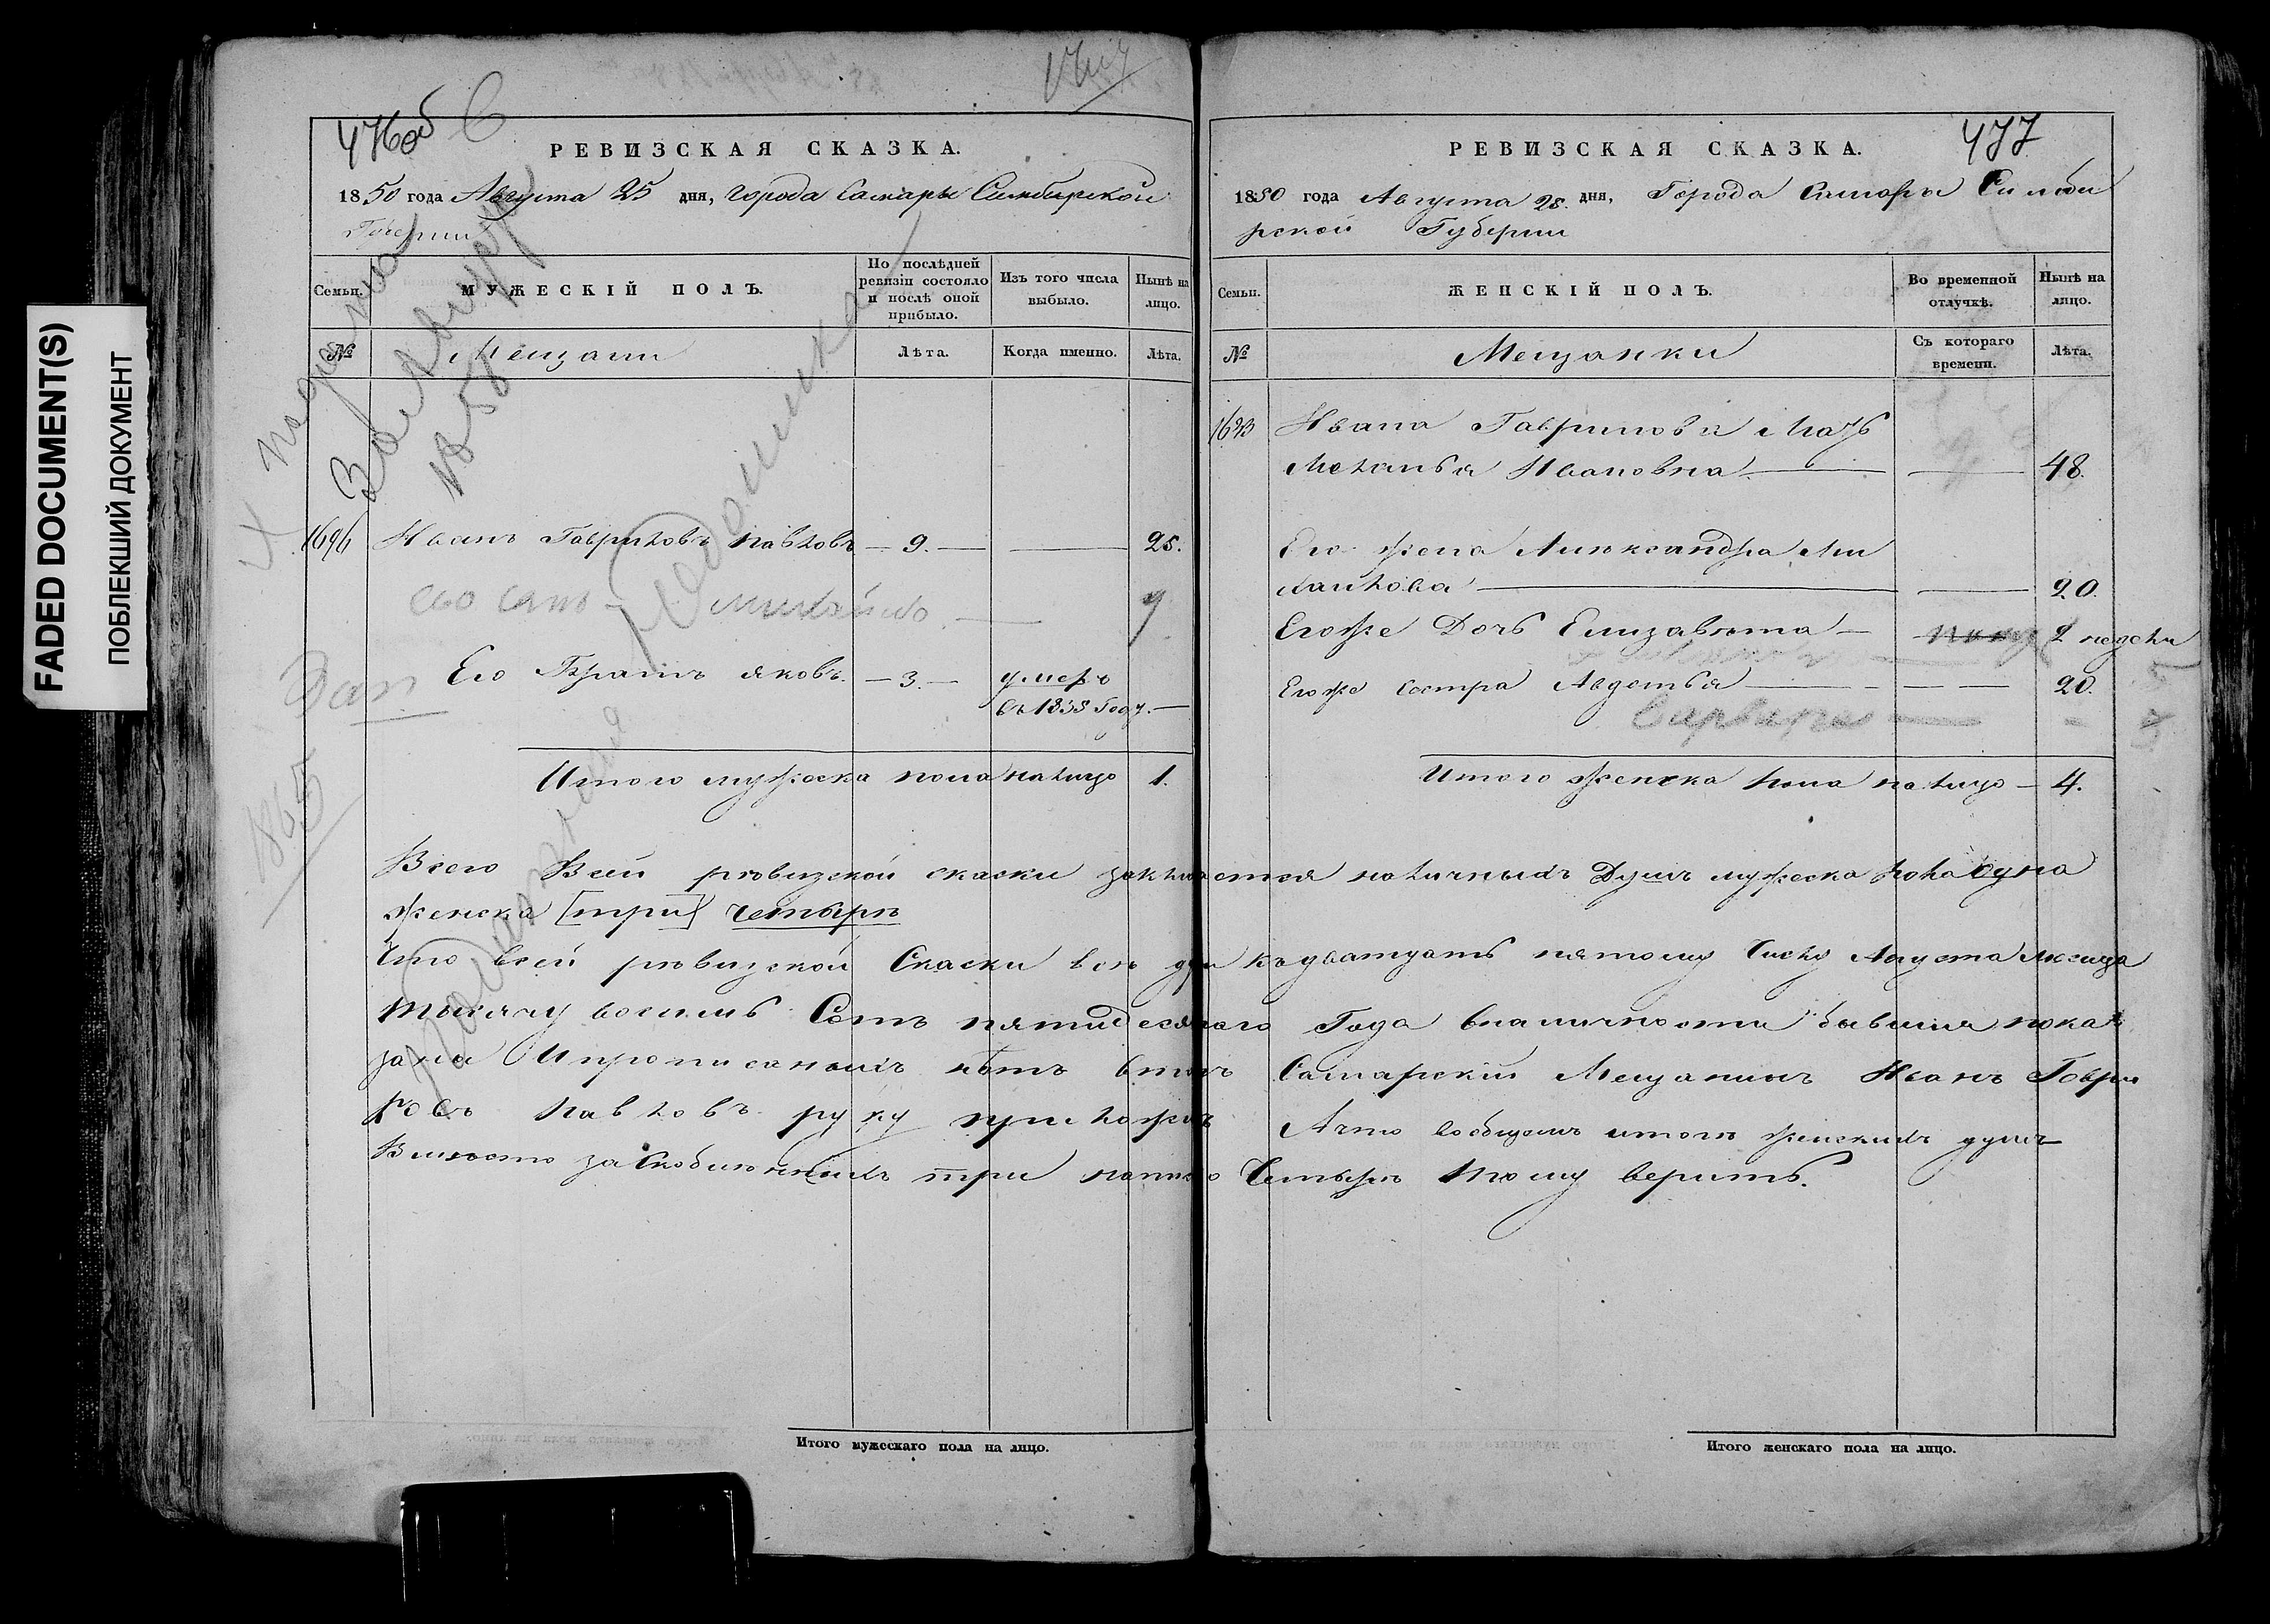 FADED DOCUMENT(S)
ПОБЛЕКШИЙ ДОКУМЕНТ
476об
РЕВИЗСКАЯ СКАЗКА.
1850 года Августа 25 дня, города Самары Симбирской
Губернии
Семьи.
МУЖЕСКІЙ ПОЛЪ.
По послѣдней ревизіи состояло и послѣ оной прибыло.
Изъ того числа выбыло.
Нынѣ на лицо.
№
Мещани
Лѣта.
Когда именно.
Лѣта.
1696 Иванъ Гавриловъ Павловъ — 9. — — 25.
его сынъ — Михайло — 9
Его Братъ яковъ. — 3. — умеръ
въ 1838 Году. —
Итого мужеска пола налицо 1.
Дан
1865
477
РЕВИЗСКАЯ СКАЗКА.
1850 года Августа 25. дня, Города Самары Симби
рской Губернии
Семьи.
ЖЕНСКІЙ ПОЛЪ.
Во временной отлучкѣ.
Нынѣ на лицо.
№
Мещанки
Съ котораго времени.
Лѣта.
Ивана Гаврилова Мать
Меланья Ивановна — — 48.
Его жена Александра Ми
хайлова — — 20.
Егоже Дочь Елизавѣта — 2 недели
Егоже сестра Авдотья — — — 20.
Варвара —
Итого женска пола налицо — 4.
Всего Всей рѣвизской скаски заключается наличныхъ Душъ мужеска пола одна
женска [три] четырѣ
Что всей рѣвизской Скаски всѣ души къ дватцать пятому числу Августа месяца
тысячу восимь Сотъ пятидесятаго Года вналичности бывшия пока
заны И прописаныхъ нѣтъ втомъ Самарский Мещанинъ Иванъ Гаври
ловъ Павловъ руку приложилъ Ачто вобщемъ итогѣ женскихъ душъ
Вместо заскобленныхъ три написано Четырѣ тому верить.
Итого мужескаго пола на лицо.
Итого женскаго пола на лицо.